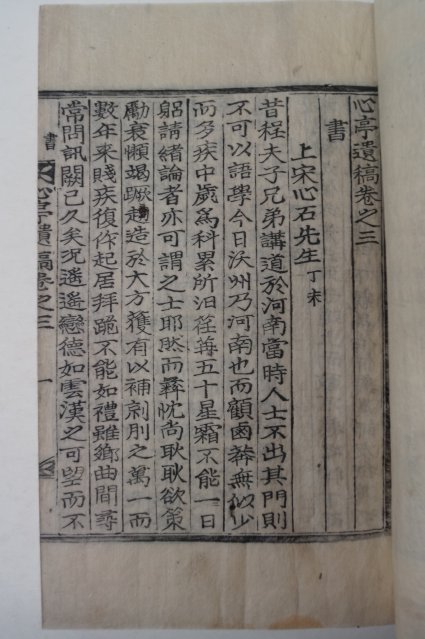 心亭遺稿卷之三
書
上宋心石先生 丁未
昔程夫子兄弟講道於河南當時人士不出其門則
不可以語學今日沃州乃河南也而顧鹵莽無似少
而多疾中歲爲科累所汩荏苒五十星霜不能一日
躬請緖論者亦可謂之士耶然而彝忱尚耿耿欲策
勵衰懶竭蹶趨造於大方獲有以補劓刖之萬一而
數年來賤疾復作起居拜跪不能如禮雖鄕曲間尋
常問訊闕已久矣况遙遙戀德如雲漢之可望而不
書 心亭遺稿卷之三 一